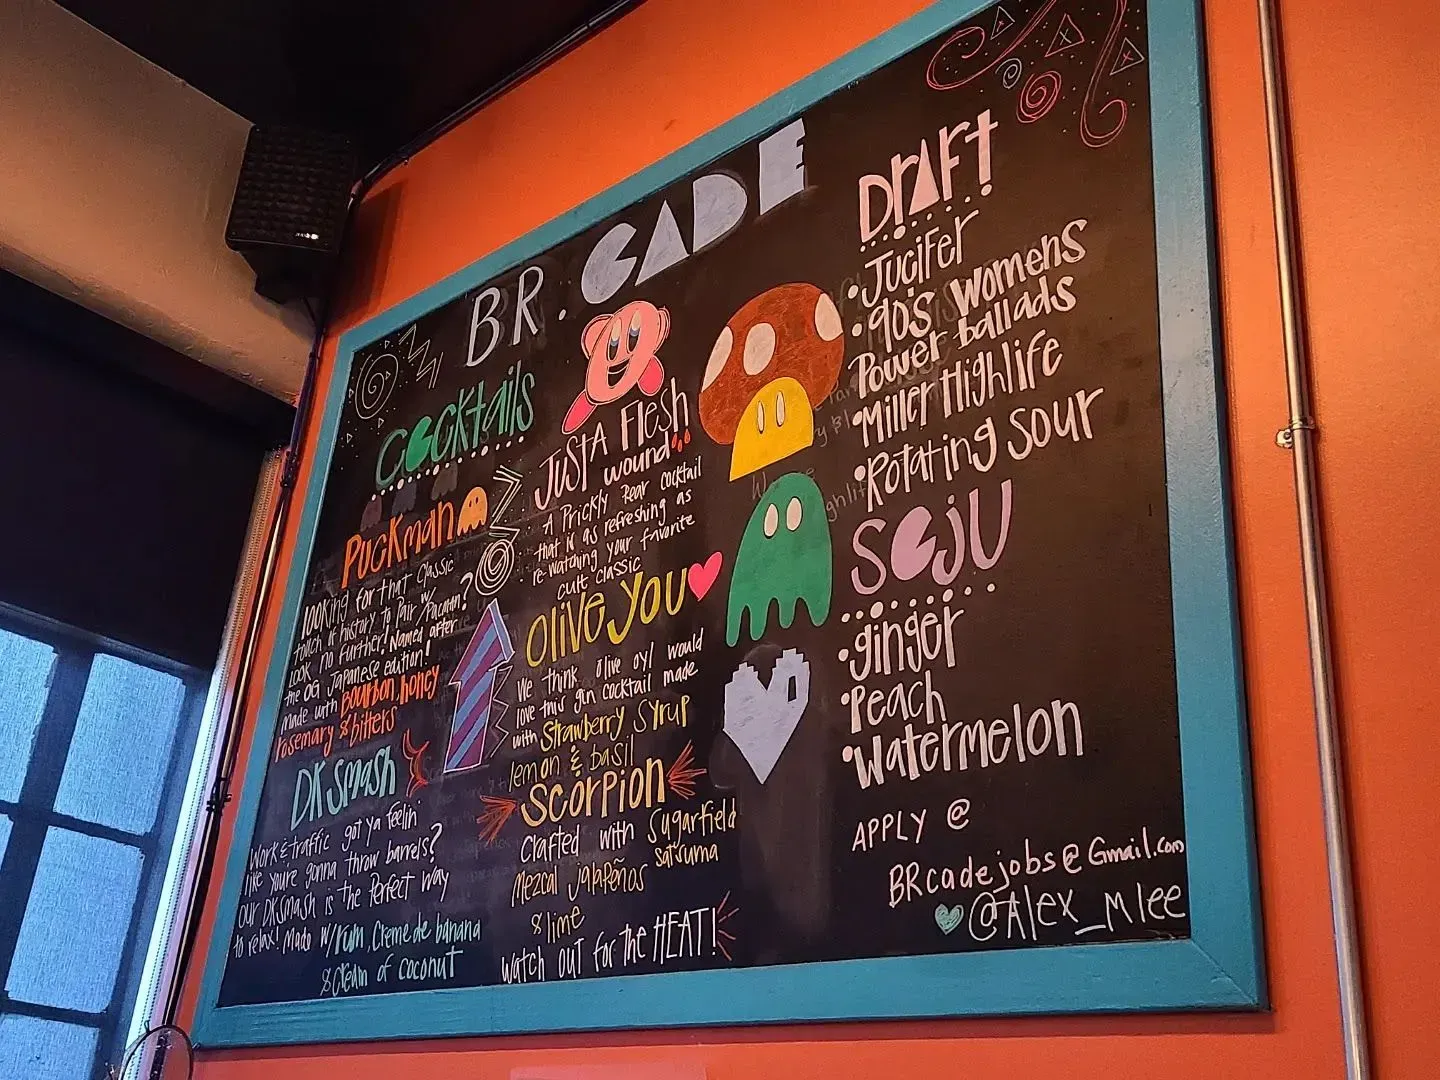 BR.CADE
Cocktails
Puckman
looking for that classic
touch of history to Pair w/ Pacman?
Look no further! Named after
the OG Japanese edition!
made with Bourbon, honey
rosemary & bitters
DK Smash
Work & traffic got ya feelin
like youre gonna throw barrels?
our DKSmash is the Perfect Way
to relax! Made w/ rum, Creme de banana
& cream of coconut
JUST A Flesh
wound
A Prickly Pear cocktail
that is as refreshing as
re-watching your favorite
cult classic
Olive you
We think Olive oyl would
love this gin cocktail made
with Strawberry syrup
lemon & basil
Scorpion
Crafted with Sugarfield
satsuma
Mezcal jalapeños
& lime
Watch out for the HEAT!
Draft
• Jucifer
• 90's Womens
Power ballads
• Miller Highlife
• Rotating Sour
SOJU
• ginger
• Peach
• Watermelon
APPLY @
BRcadejobs@Gmail.com
@Alex_Mlee